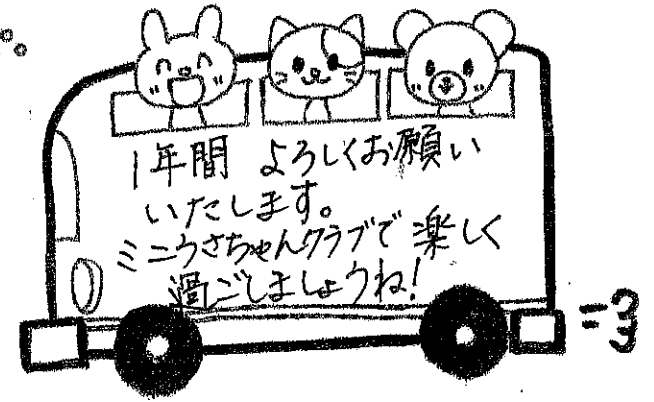 1年間 よろしくお願い
いたします。
ミニうさちゃんクラブで楽しく
過ごしましょうね!